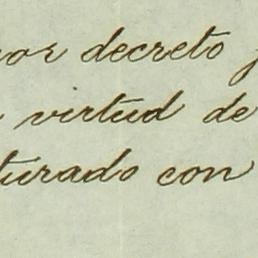 por decreto
virtud de
turado con